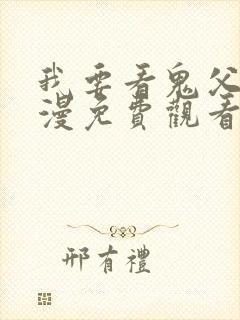 我要看鬼父
漫免費觀看
邢有禮